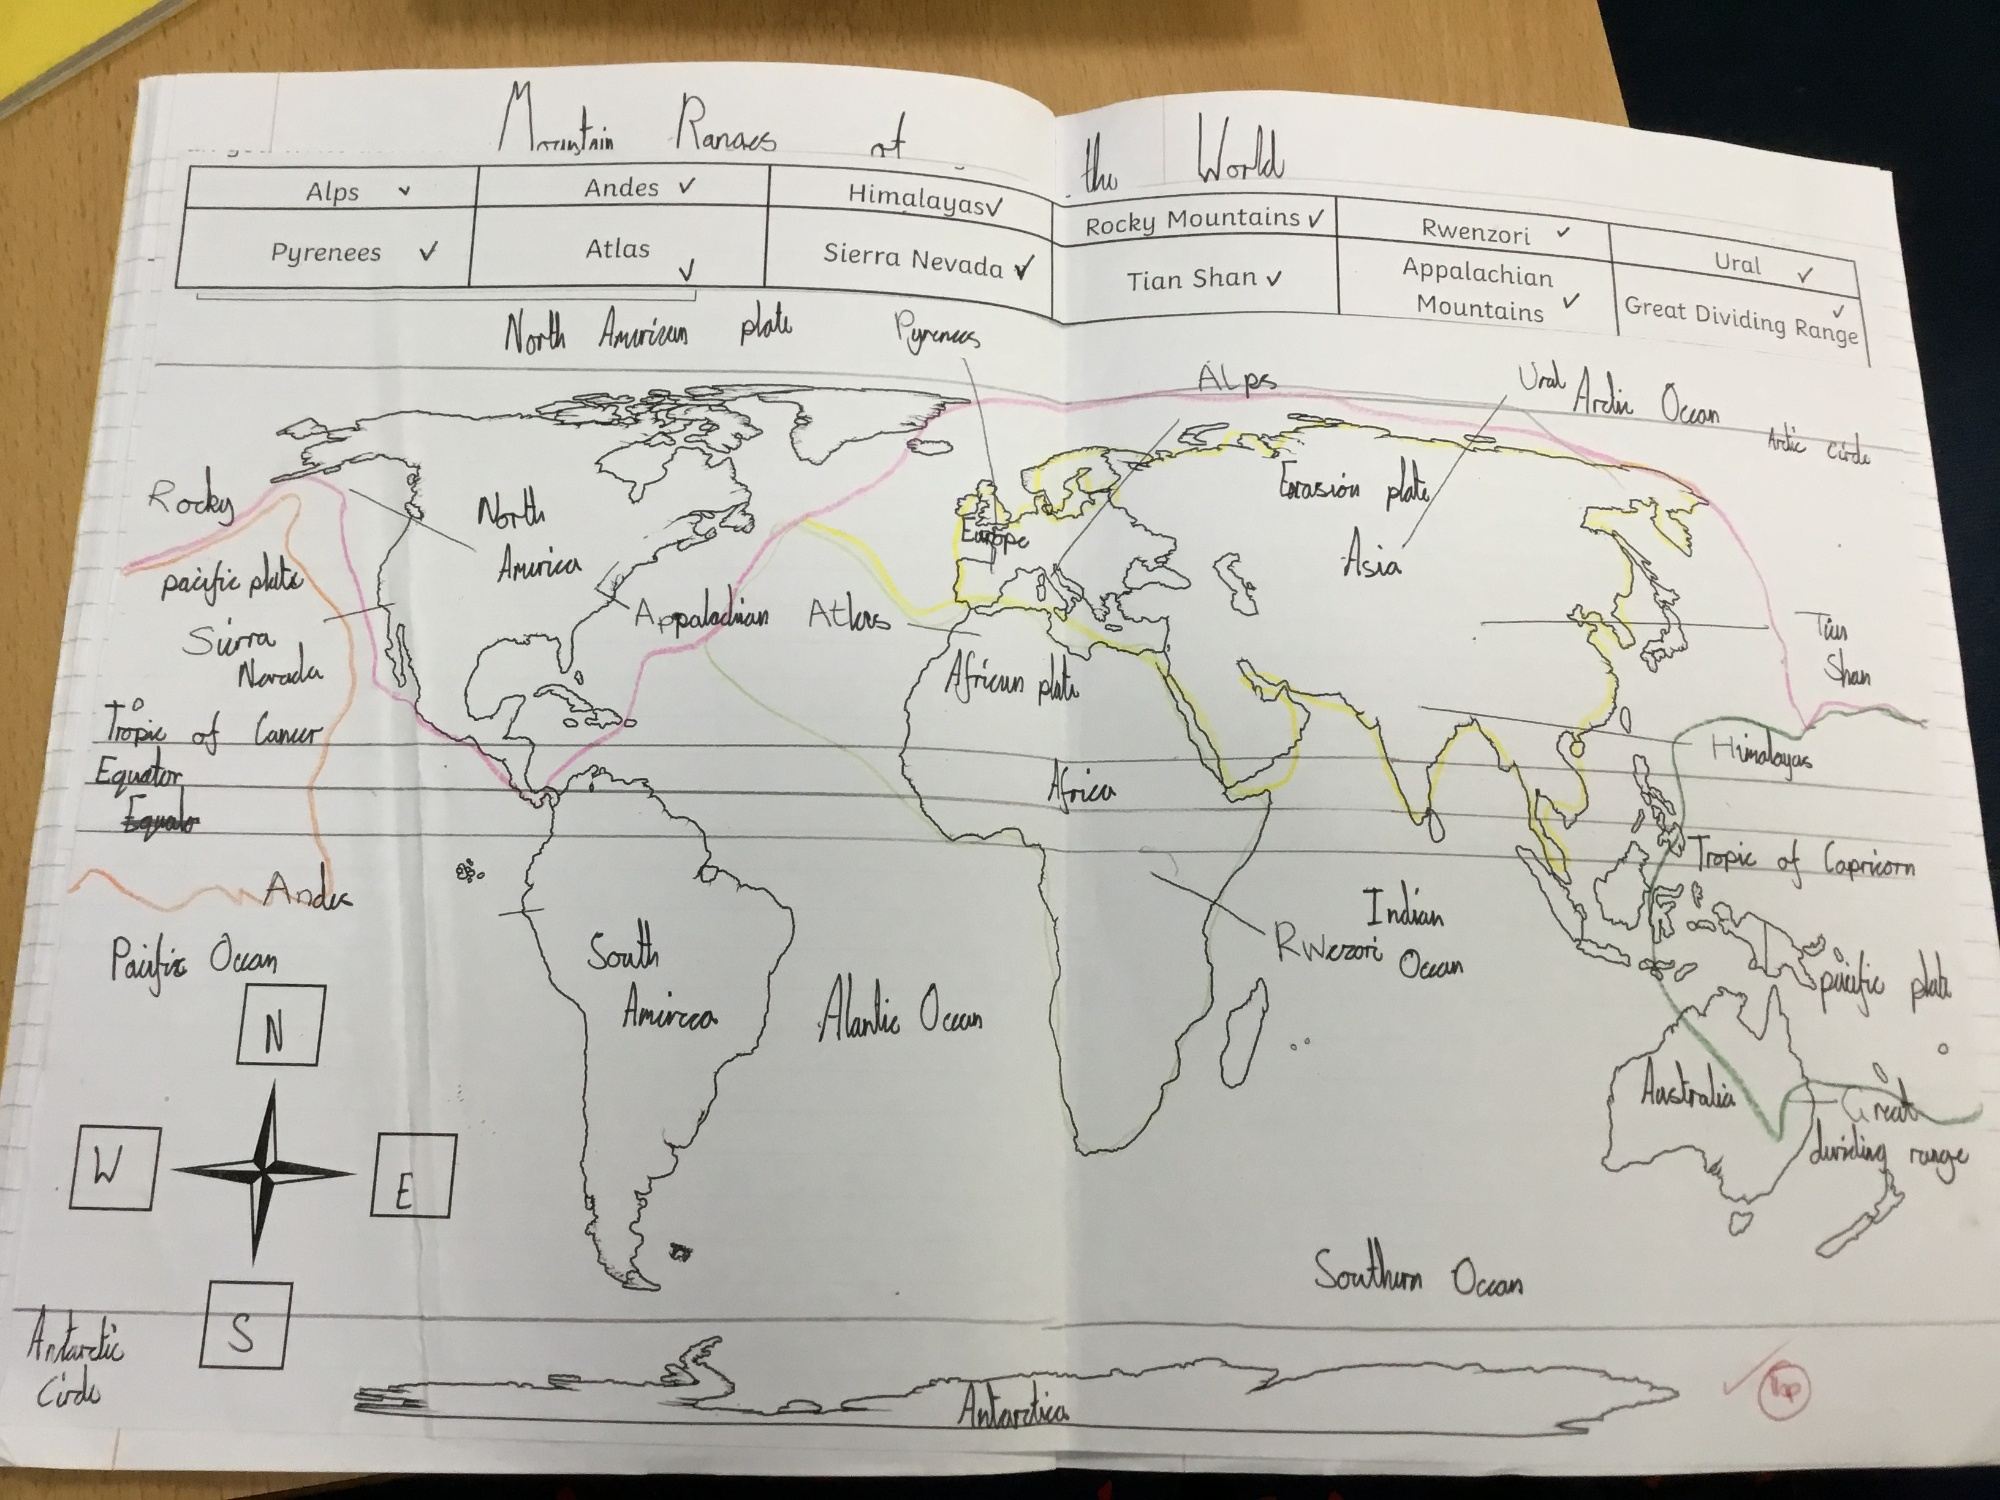 Mountain Ranges of the World
Alps ✓ Andes ✓ Himalayas ✓ Rocky Mountains ✓ Rwenzori ✓ Ural ✓
Pyrenees ✓ Atlas ✓ Sierra Nevada ✓ Tian Shan ✓ Appalachian Mountains ✓ Great Dividing Range ✓
North American plate
Pyrenees
Alps
Ural
Arctic Ocean
Artic Circle
Rocky
North
America
Europe
Eurasion plate
Asia
pacific plate
Sierra
Nevada
Appalachian
Atlas
African plate
Tian
Shan
Tropic of Cancer
Equator
Himalayas
Africa
Tropic of Capricorn
Andes
Pacific Ocean
South
Amircca
Alantic Ocean
Indian
Ocean
Rwezori
pacific plate
Australia
Great
dividing range
N
W
E
S
Southern Ocean
Antarctic
Circle
Antarctica